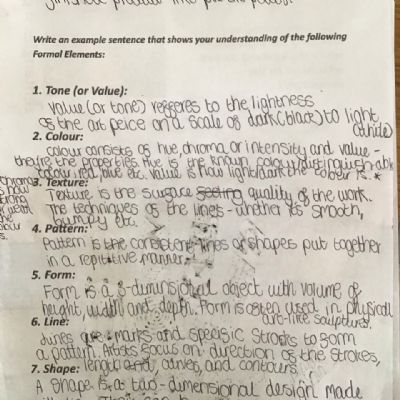 finished product like
Write an example sentence that shows your understanding of the following
Formal Elements:
1. Tone (or Value):
Value (or tone) refferes to the lightness
of the art peice on a scale of dark (black) to light
(white)
2. Colour:
colour consists of hue, chroma or intensity and value -
the/re the properties. Hue is the known colour/distinguishable
colour, red, blue etc. Value is how light/dark the colour is. *
chroma
is how
strong
or weak
the
colour
is.
3. Texture:
Texture is the surface feeling quality of the work.
The techniques of the lines - whether its smooth,
bumpy etc.
4. Pattern:
Pattern is the consistent lines or shapes put together
in a repititive manner.
5. Form:
Form is a 3-dimensional object with volume of
height, width and depth. Form is often used in physical
art-like sculptures.
6. Line:
Lines are marks and specific Strokes to form
a pattern. Artists focus on direction of the strokes,
length and, curves, and contours.
7. Shape:
A shape is a two-dimensional design made